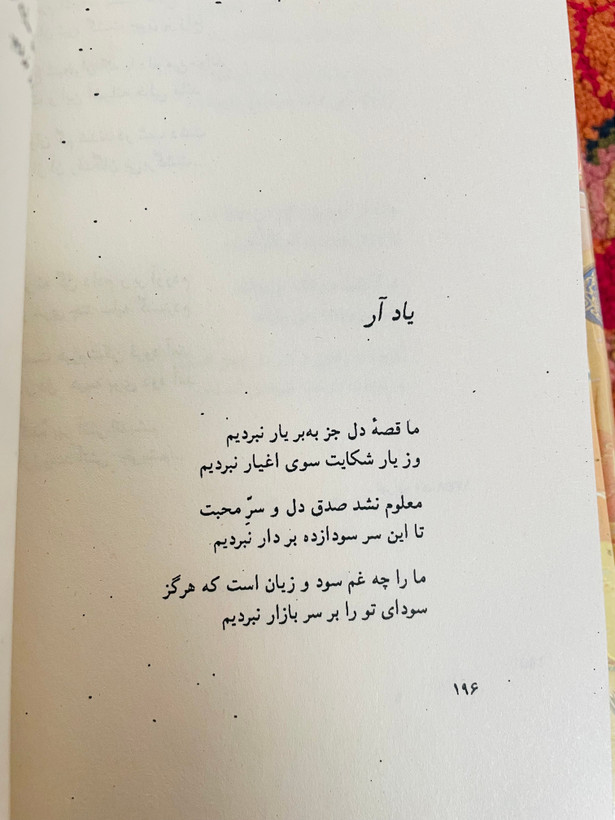 یاد آر
ما قصهٔ دل جز به‌بر یار نبردیم
وز یار شکایت سوی اغیار نبردیم
معلوم نشد صدق دل و سرِّ محبت
تا این سر سودازده بر دار نبردیم
ما را چه غم سود و زیان است که هرگز
سودای تو را بر سر بازار نبردیم
۱۹۶